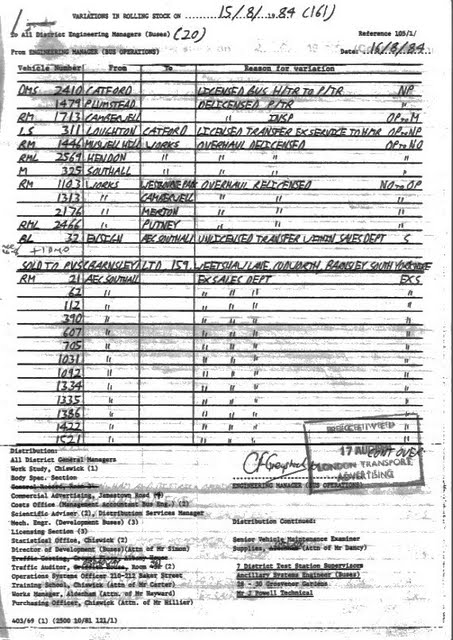 VARIATIONS IN ROLLING STOCK ON 15/8/1984 (161)
To All District Engineering Managers (Buses) (20) Reference 105/1/
From ENGINEERING MANAGER (BUS OPERATIONS) Date: 16/8/84
Vehicle Number From To Reason for variation
DMS 2410 CATFORD LICENSED BUS H/TR TO P/TR NP
1479 PLUMSTEAD DELICENSED P/TR "
RM 1713 CAMBERWELL " INSP OP to M
LS 311 LOUGHTON CATFORD LICENSED TRANSFER EX SERVICE TO H/TR OP to NP
RM 1446 MUSWELL HILL WORKS OVERHAUL DELICENSED OP to NO
RML 2569 HENDON " " "
M 325 SOUTHALL " " "
RM 1103 WORKS WESTBOURNE PARK OVERHAUL RELICENSED NO to OP
1313 " CAMBERWELL " "
2176 " MERTON " "
RML 2466 " PUTNEY " "
RL 32 ENSIGN AEC SOUTHALL UNLICENSED TRANSFER WITHIN SALES DEPT S
SOLD TO PVS (BARNSLEY) LTD, 159, WEETSHAW LANE, CUDWORTH, BARNSLEY SOUTH YORKSHIRE
RM 21 AEC SOUTHALL EX SALES DEPT EX S
62 " " " " "
112 " " " " "
390 " " " " "
607 " " " " "
705 " " " " "
1031 " " " " "
1092 " " " " "
1334 " " " " "
1335 " " " " "
1386 " " " " "
1422 " " " " "
1521 " " " " "
CONT OVER
RECEIVED
17 AUG 1984
LONDON TRANSPORT
ADVERTISING
Distribution:
All District General Managers
Work Study, Chiswick (1)
Body Spec. Section
ENGINEERING MANAGER (BUS OPERATIONS)
Commercial Advertising, Jamestown Road (4)
Costs Office (Management Accountant Bus Eng.) (2)
Scientific Adviser (2), Distribution Services Manager
Mech. Engr. (Development Buses) (3)
Licensing Section (3)
Statistical Office, Chiswick (2)
Director of Development (Buses)(Attn of Mr Simon)
Traffic Auditor, Room (2)
Operations Systems Officer 210-212 Baker Street
Training School, Chiswick (Attn of Mr Carter)
Works Manager, Aldenham (Attn. of Mr Hayward)
Purchasing Officer, Chiswick (Attn of Mr Hillier)
Distribution Continued:
Senior Vehicle Maintenance Examiner
Supplies, (Attn of Mr Dancy)
7 District Test Station Supervisors
Ancillary Systems Engineer (Buses)
28 - 30 Grosvenor Gardens
Mr J Powell Technical
403/69 (1) (2500 10/81 121/1)